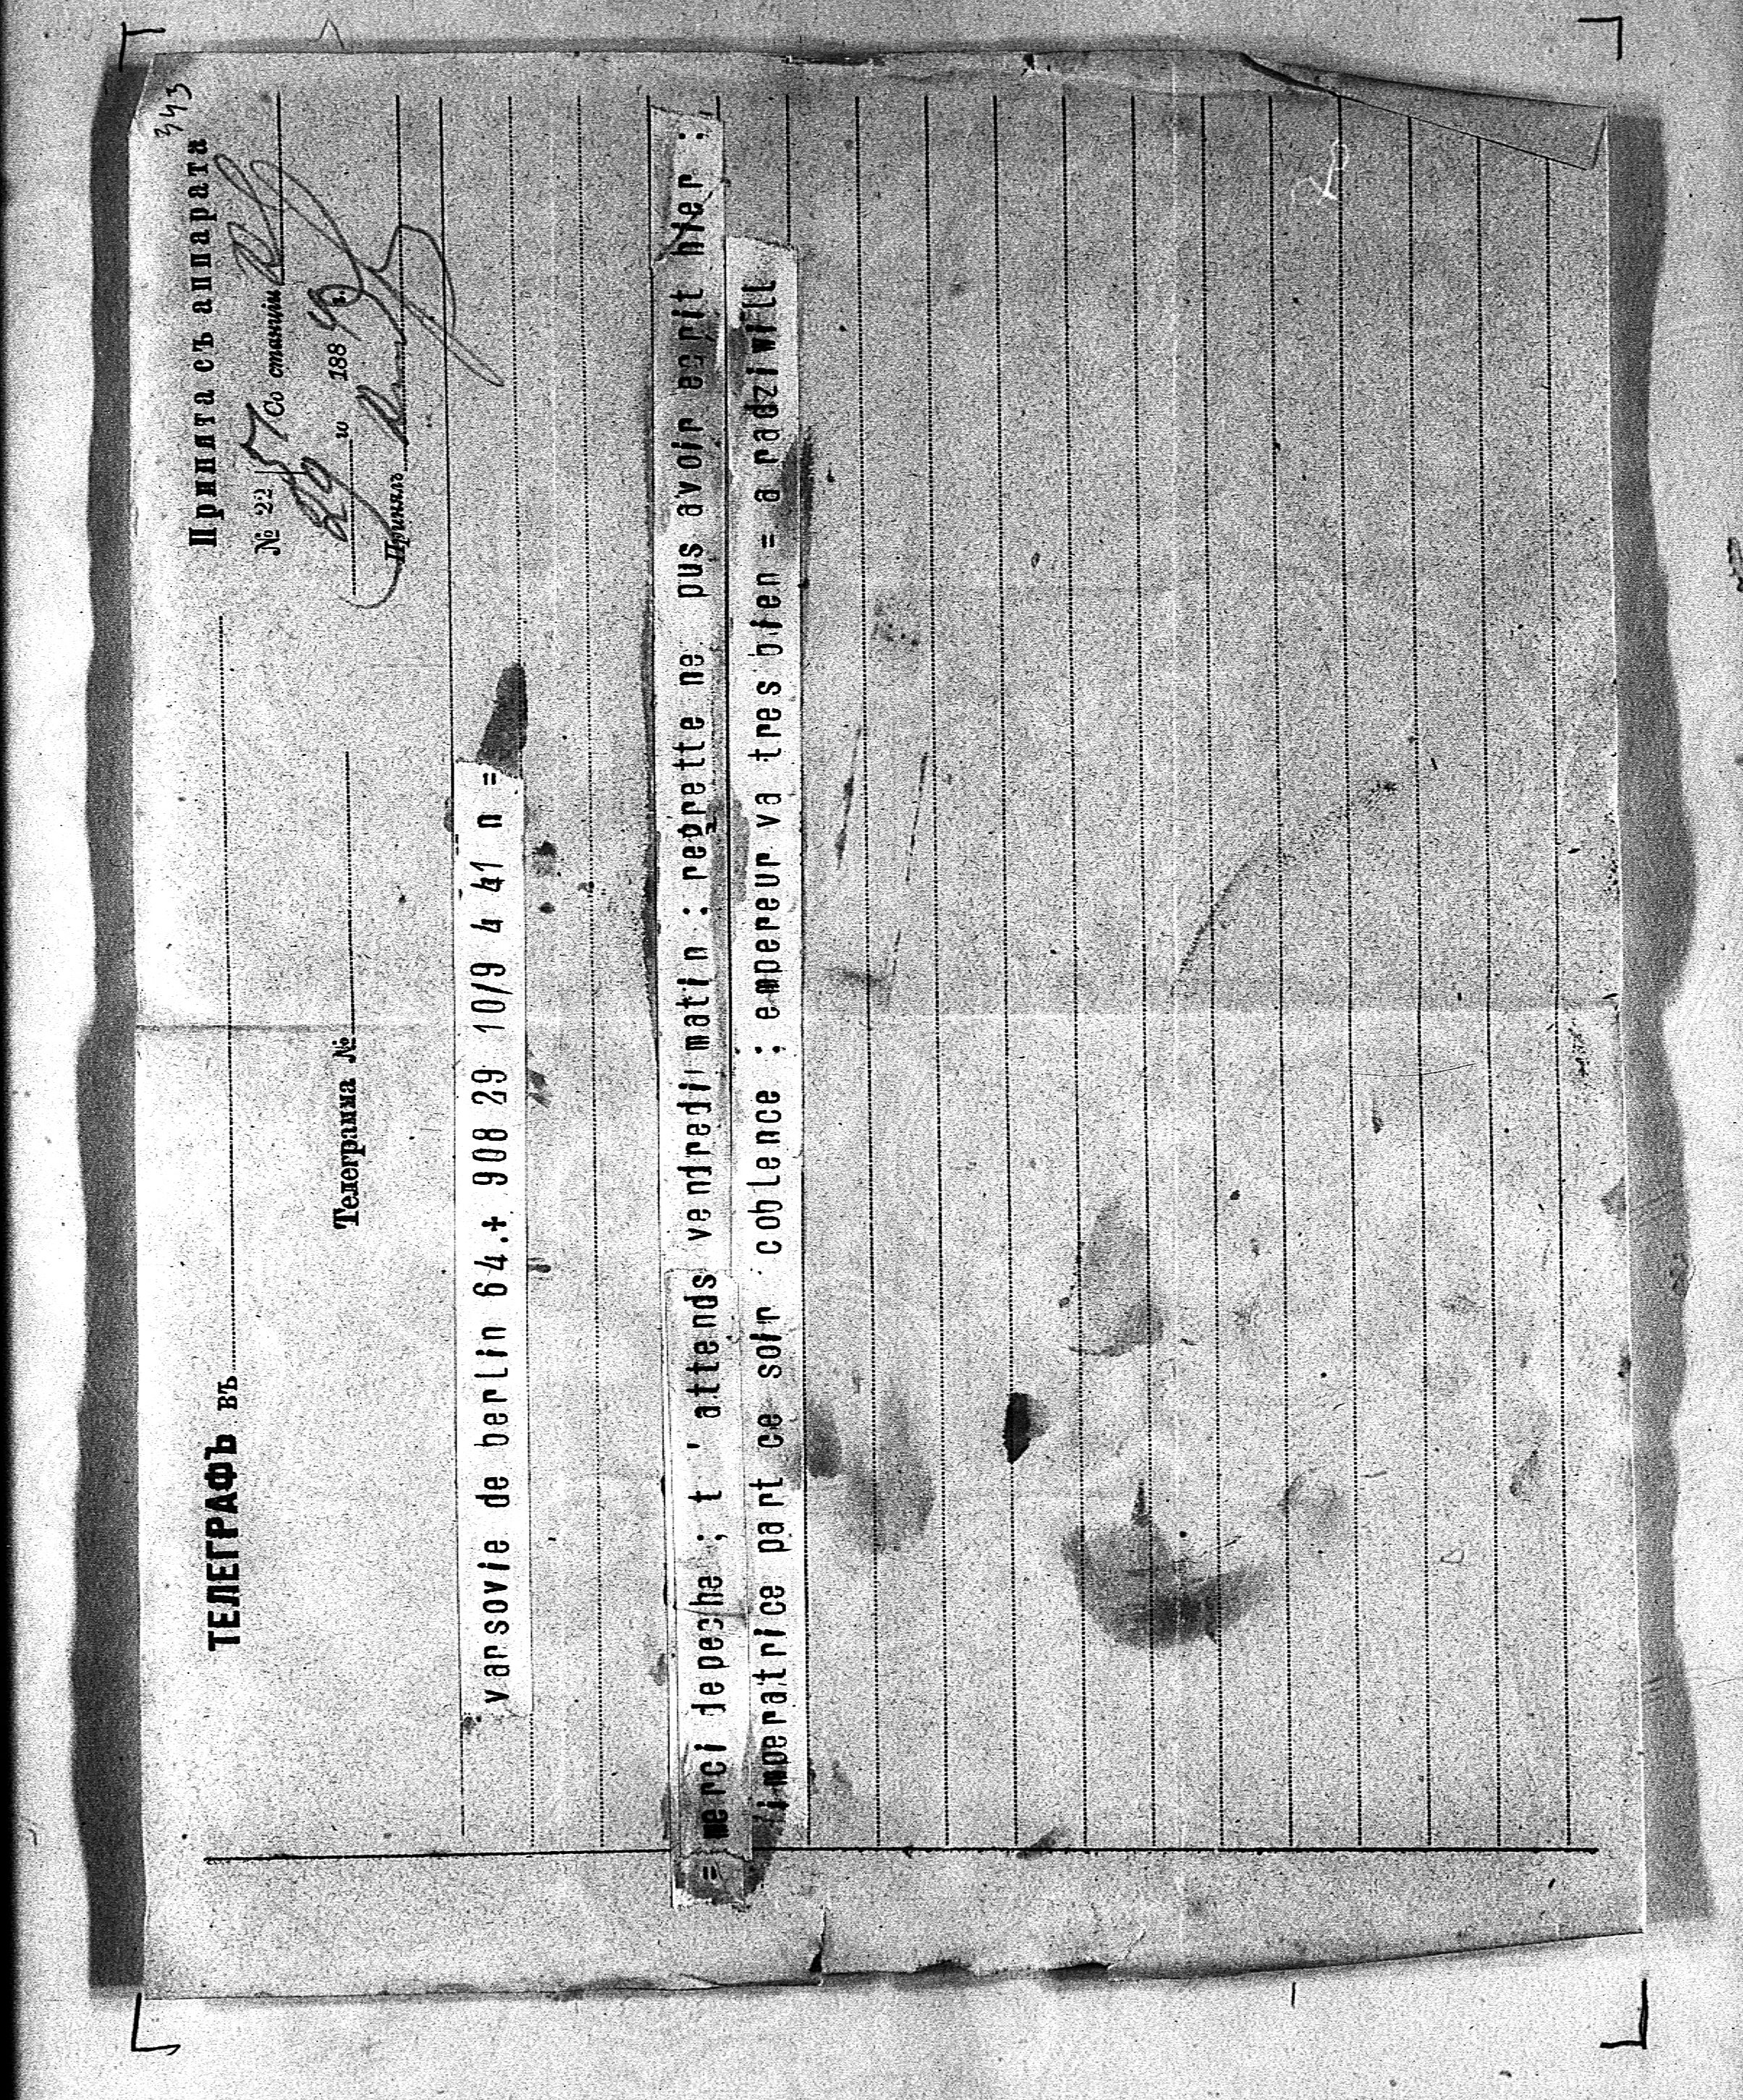 343
ТЕЛЕГРАФЪ въ
Принята съ аппарата
№ 22 57 Со станціи
Телеграмма №
29 го 188
Принялъ
varsovie de berlin 64.+ 908 29 10/9 4 41 n =
= merci depeche ; t ' attends vendredi matin : reprette ne pus avoir ecrit hier :
imperatrice part ce soir coblence : empereur va tres bien = a radziwill